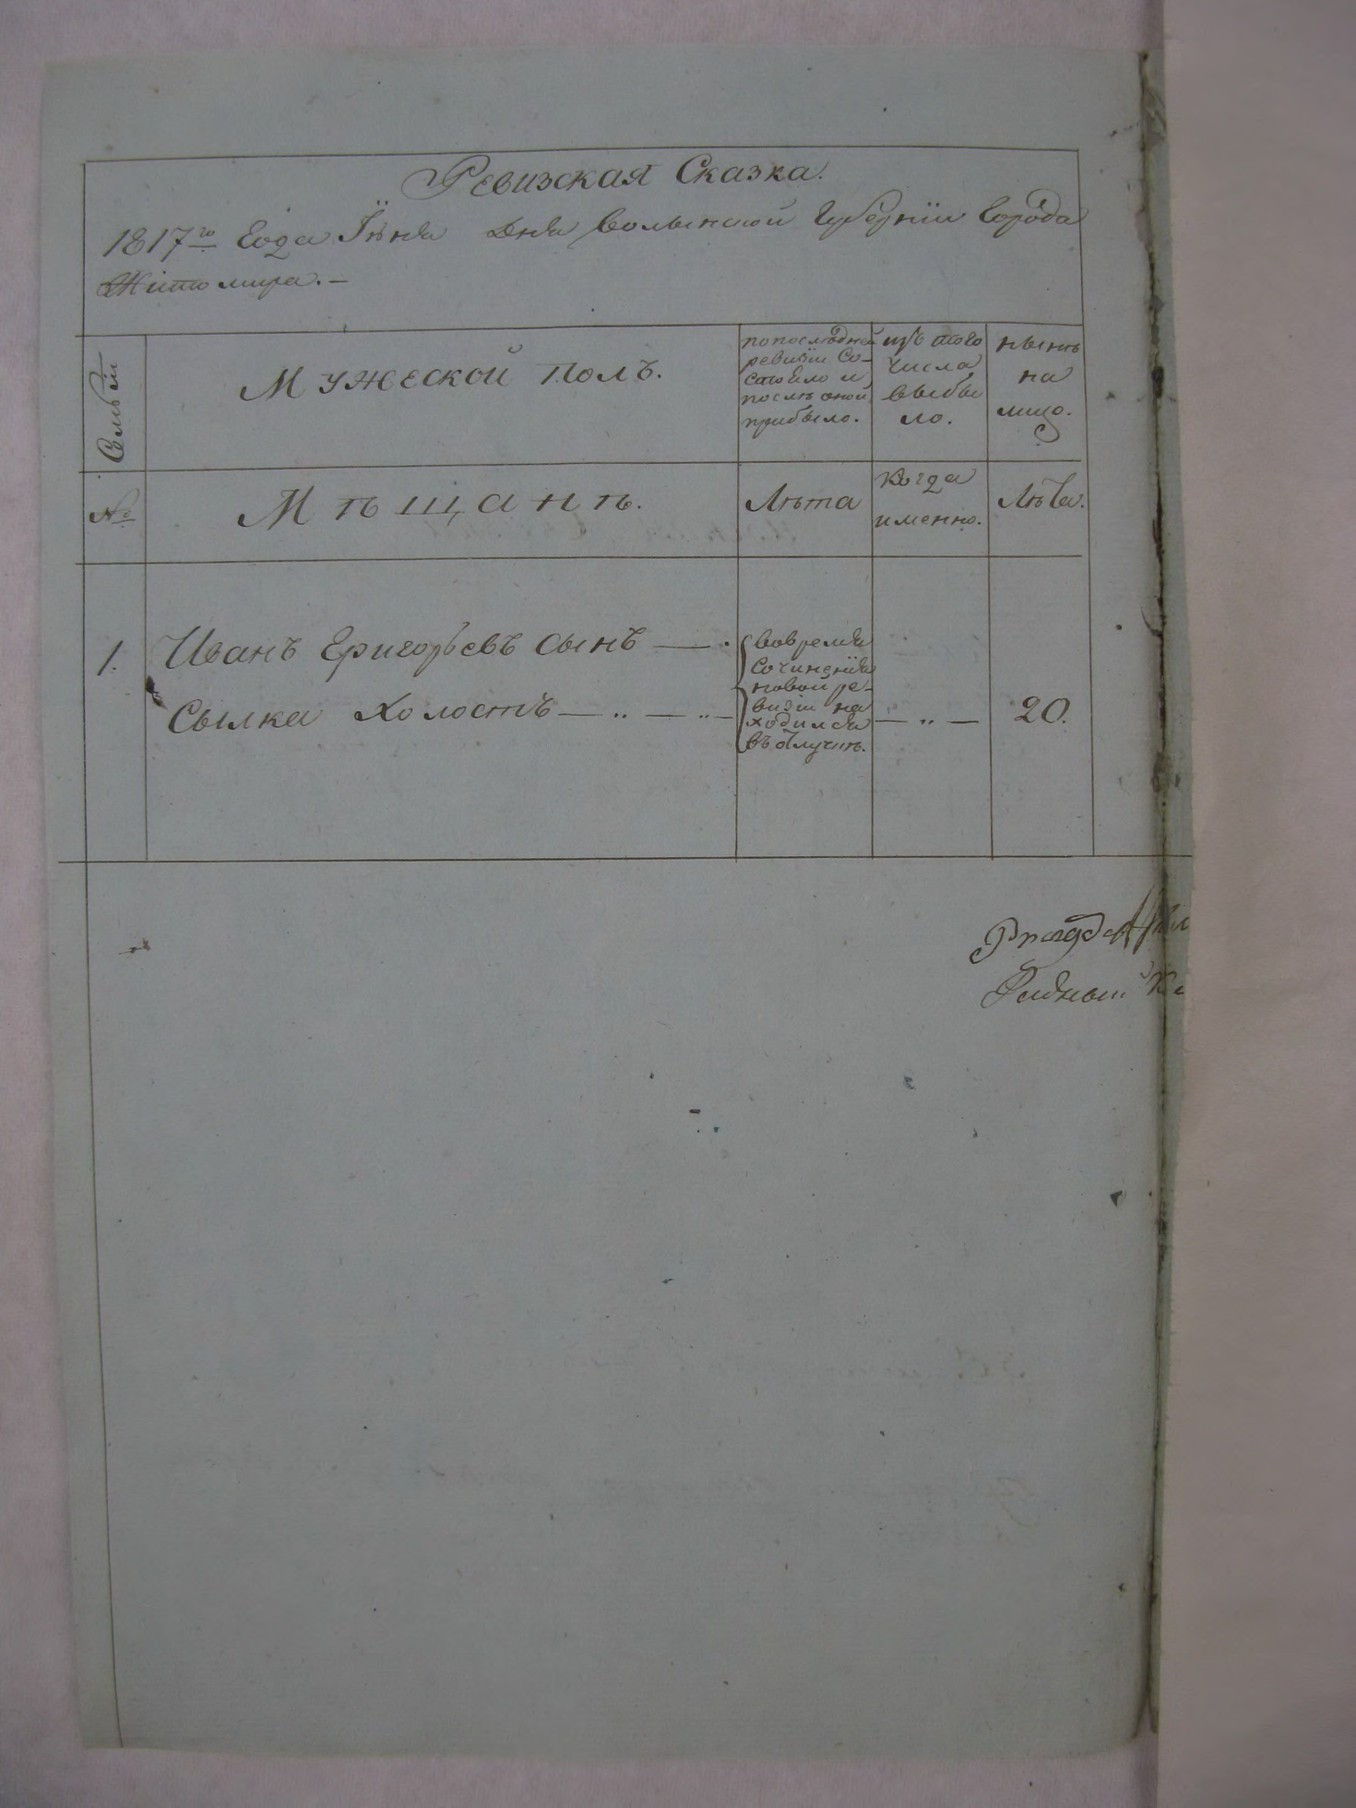 Ревизская Сказка.
1817го Года Іюня Дня Волынской Губерніи Города
Житомира. —
Семьи
Мужеской полъ.
попоследней
ревизіи Со-
стояло и
послѣ оной
прибыло.
изъ того
числа
выбы
ло.
нынѣ
на
лицо.
№
Мѣщанѣ.
Лѣта
Когда
именно.
Лѣта.
1.
Иванъ Григорьевъ сынъ —
Сылка холостъ — „ — „ —
вовремя
сочиненія
новой ре-
визіи на
ходился
въ отлучкѣ.
— „ —
20.
Ратный